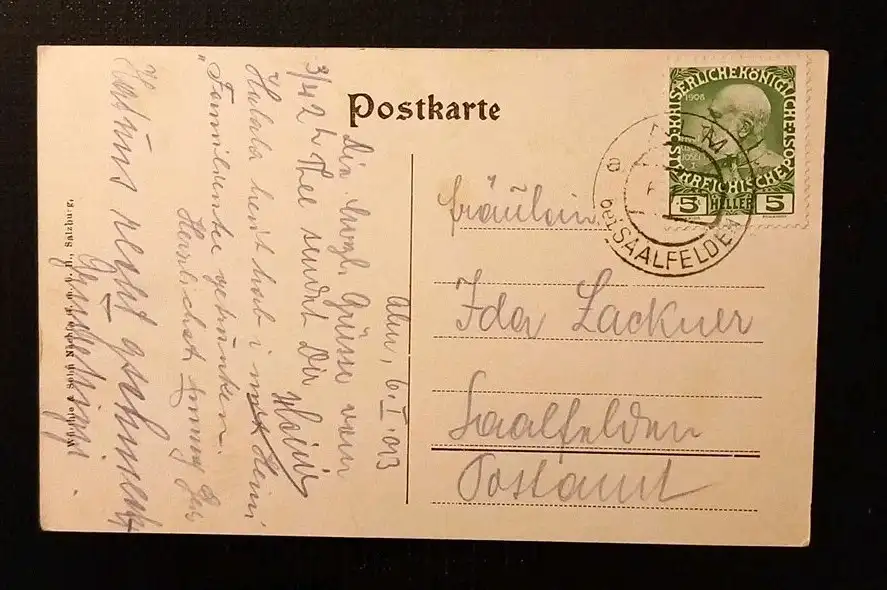 Postkarte
KAISERLICHEKÖNIGLICHE
1908
ÖSTERREICHISCHE
5 HELLER 5
ALM
bei SAALFELDEN
Fräulein
Ida Lackner
Saalfelden
Postamt
Alm, 6.I.913
Die herzl. Grüsse vom
3/4 2 h Thee sendet Dir
heut hab i mit Deini
"Familienthee getrunken.
Herzlichst
Hat uns recht geschmeckt
Würthle & Sohn Nachfg. G. m. b. H., Salzburg.